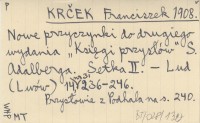 P
KRČEK Franciszek 1908.
Nowe przyczynki do drugiego
wydania „Księgi przysłów" S.
Adalberga. Setka II. – Lud
(Lwów) 14 1908 236-246.
Przysłowie z Podhala na s. 240.
WMP
MT